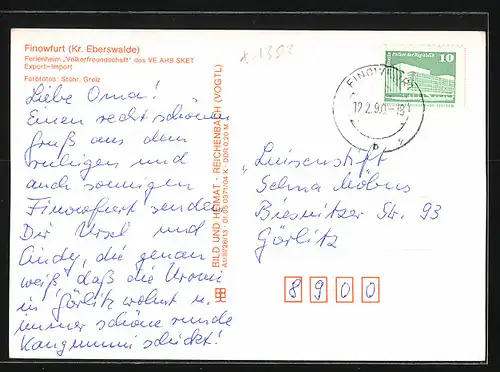 Finowfurt (Kr. Eberswalde)
Ferienheim „Völkerfreundschaft" des VE AHB SKET
Export-Import
Farbfotos: Stöhr, Greiz
Liebe Oma!
Einen recht schönen
Gruß aus dem
ruhigen und
auch sonnigen
Finowfurt senden
Dir Ursel und
Cindy, die genau
weiß, daß die Uromi
in Görlitz wohnt u.
immer schöne runde
Kaugummi schickt!
BILD UND HEIMAT · REICHENBACH (VOGTL)
A1/III/26/13 · 01 05 0371/04 K · DDR 0,20 M
10
FINOWFURT
12.2.90-18
b
Luisenstift
Selma Möbus
Biesnitzer Str. 93
Görlitz
8900